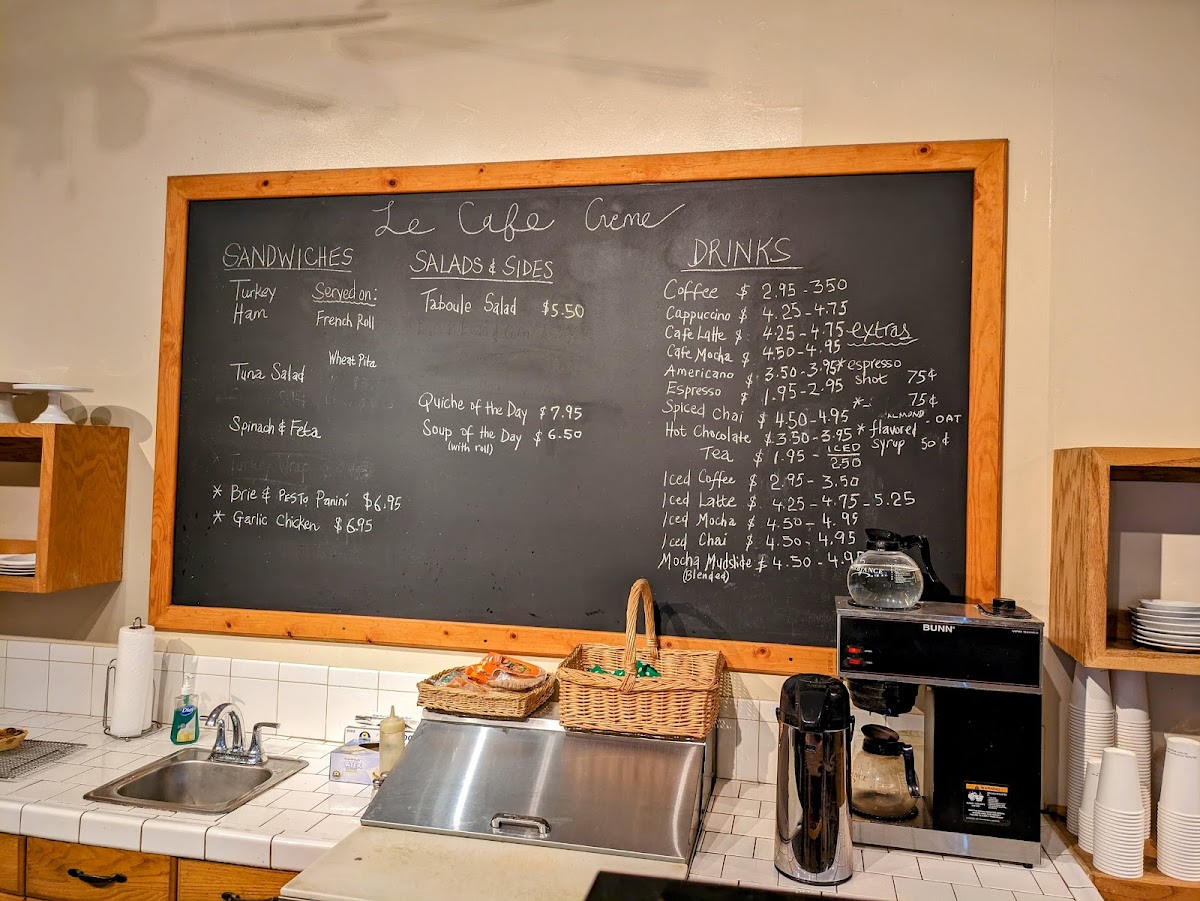 Le Cafe Creme
SANDWICHES
Turkey
Ham
Served on:
French Roll
Wheat Pita
Tuna Salad
Spinach & Feta
* Turkey Wrap
* Brie & PESTO Panini $6.95
* Garlic Chicken $6.95
SALADS & SIDES
Taboule Salad $5.50
Quiche of the Day $7.95
Soup of the Day $6.50
(with roll)
DRINKS
Coffee $ 2.95 - 350
Cappuccino $ 4.25 - 4.75
Cafe Latte $ 425 - 4.75
Cafe Mocha $ 4.50 - 4.95
Americano $ 3.50 - 3.95
Espresso $ 1.95 - 2.95
Spiced Chai $ 4.50 - 4.95
Hot Chocolate $ 3.50 - 3.95
Tea $ 1.95 - ICED
2.50
Iced Coffee $ 2.95 - 3.50
Iced Latte $ 4.25 - 4.75 - 5.25
Iced Mocha $ 4.50 - 4.95
Iced Chai $ 4.50 - 4.95
Mocha Mudslide $ 4.50 - 4.95
(Blended)
extras
* espresso
shot 75¢
*- 75¢
ALMOND - OAT
* flavored
syrup 50¢
BUNN
Dial